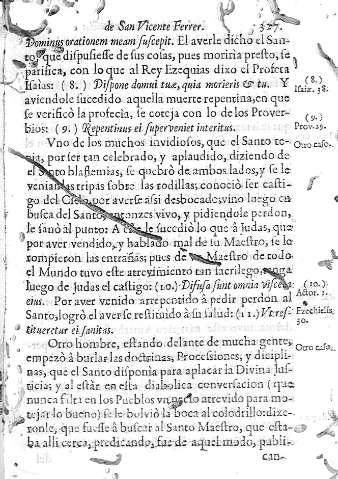 de San Vicente Ferrer. 327.
Dominus orationem meam suscepit. El averle dicho el San-
to, que dispusiesse de sus cosas, pues moriria presto, se
parifica, con lo que al Rey Ezequias dixo el Profeta
Isaias: (8.) Dispone domui tuæ, quia morieris & tu. Y
aviendole sucedido aquella muerte repentina, en que
se verificò la profecia, se coteja con lo de los Prover-
bios: (9.) Repentinus ei superveniet interitus.
(8.)
Isaiæ. 38.
(9.)
Prov. 29.
Vno de los muchos invidiosos, que el Santo te-
nia, por ser tan celebrado, y aplaudido, diziendo de
el Santo blasfemias, se quebrò de ambos lados, y se le
venian las tripas sobre las rodillas, conociò ser casti-
go del Cielo, por averse assi desbocado; vino luego en
busca del Santo, entonzes vivo, y pidiendole perdon,
le sanò al punto: A este le sucediò lo que à Judas, que
por aver vendido, y hablado mal de su Maestro, se le
rompieron las entrañas; pues de Maestro de todo
el Mundo tuvo este atrevimiento tan sacrilego, tenga
luego de Judas el castigo: (10.) Difusa sunt omnia viscera
eius. Por aver venido arrepentido à pedir perdon al
Santo, logrò el averse restituido à su salud: (11.) Vt res-
titueretur ei sanitas.
Otro caso.
(10.)
Actor. 1.
Ezechielis
30.
Otro hombre, estando delante de mucha gente,
empezò à burlar las doctrinas, Processiones, y dicipli-
nas, que el Santo disponia para aplacar la Divina Jus-
ticia; y al estàr en esta diabolica conversacion (que
nunca falta en los Pueblos vn necio atrevido para mo-
tejar lo bueno) se le bolviò la boca al colodrillo: dixe-
ronle, que fuesse à buscar al Santo Maestro, que esta-
ba alli cerca, predicando, fue de aquel modo, publi-
Otro caso.
can-